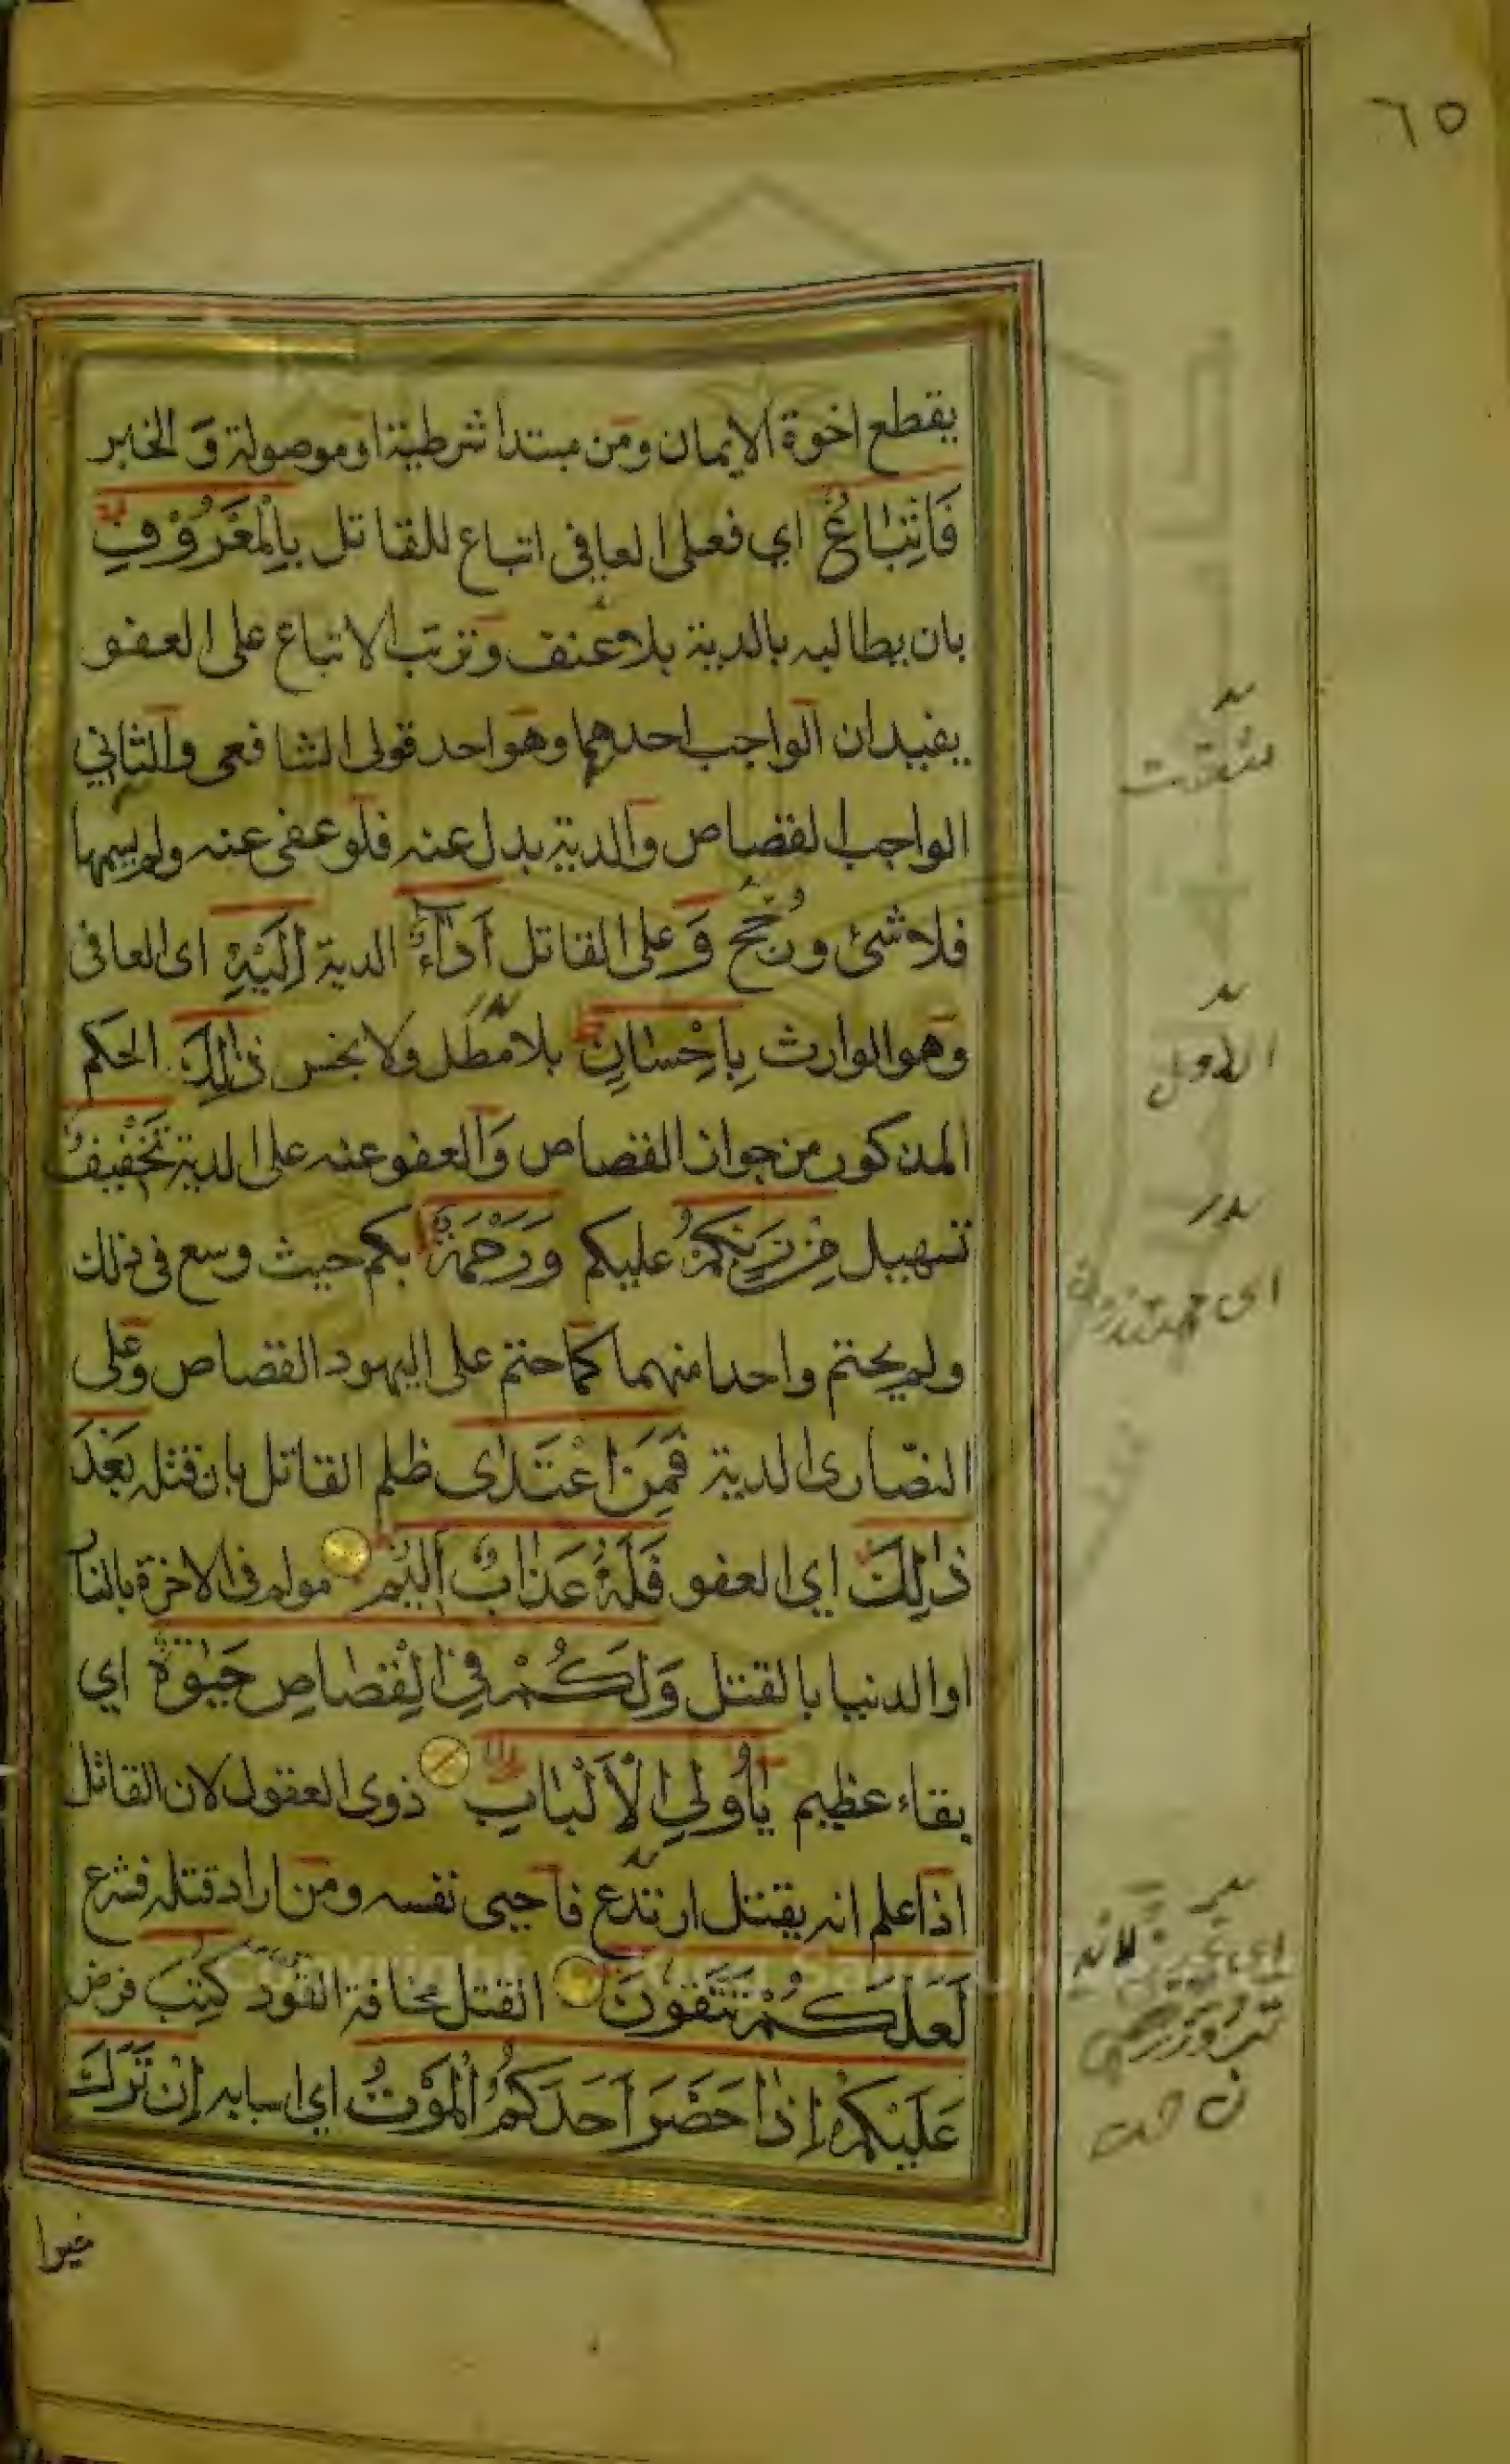 ٦٥
يقطع اخوة الايمان ومن مبتدا شرطية او موصولة و الخبر
فَاتِّبَاعٌ اي فعلى العافى اتباع للقاتل بِالْمَعْرُوْفِ
بان يطالبه بالدية بلا عنف وترتب الاتباع على العفو
يفيد ان الواجب احدهما وهو احد قولى الشافعى والثاني
الواجب القصاص والدية بدل عنه فلو عفى عنه ولم يسمها
فلا شئ ورُجِّح وَ على القاتل اَدَآءٌ الدية اِلَيْهِ اى العافى
وهو الوارث بِاِحْسَانٍ بلا مطل ولا بخس ذٰلِكَ الحكم
المذكور من جواز القصاص وَالعفو عنه على الدية تَخْفِيْفٌ
تسهيل مِنْ رَبِّكُمْ عليكم وَرَحْمَةٌ بكم حيث وسع فى ذلك
ولم يحتم واحدا منهما كما حتم على اليهود القصاص وعلى
النصارى الدية فَمَنِ اعْتَدٰى ظلم القاتل بان قتله بَعْدَ
ذٰلِكَ اي العفو فَلَهٗ عَذَابٌ اَلِيْمٌ مولم فى الاخرة بالنار
او الدنيا بالقتل وَلَكُمْ فِي الْقِصَاصِ حَيٰوةٌ اي
بقاء عظيم يٰاُولِي الْاَلْبَابِ ذوى العقول لان القاتل
اذا علم انه يقتل ارتدع فاحيى نفسه ومن اراد قتله فشرع
لَعَلَّكُمْ تَتَّقُوْنَ القتل مخافة القود كُتِبَ فرض
عَلَيْكُمْ اِذَا حَضَرَ اَحَدَكُمُ الْمَوْتُ اي اسبابه اِنْ تَرَكَ
خيرا